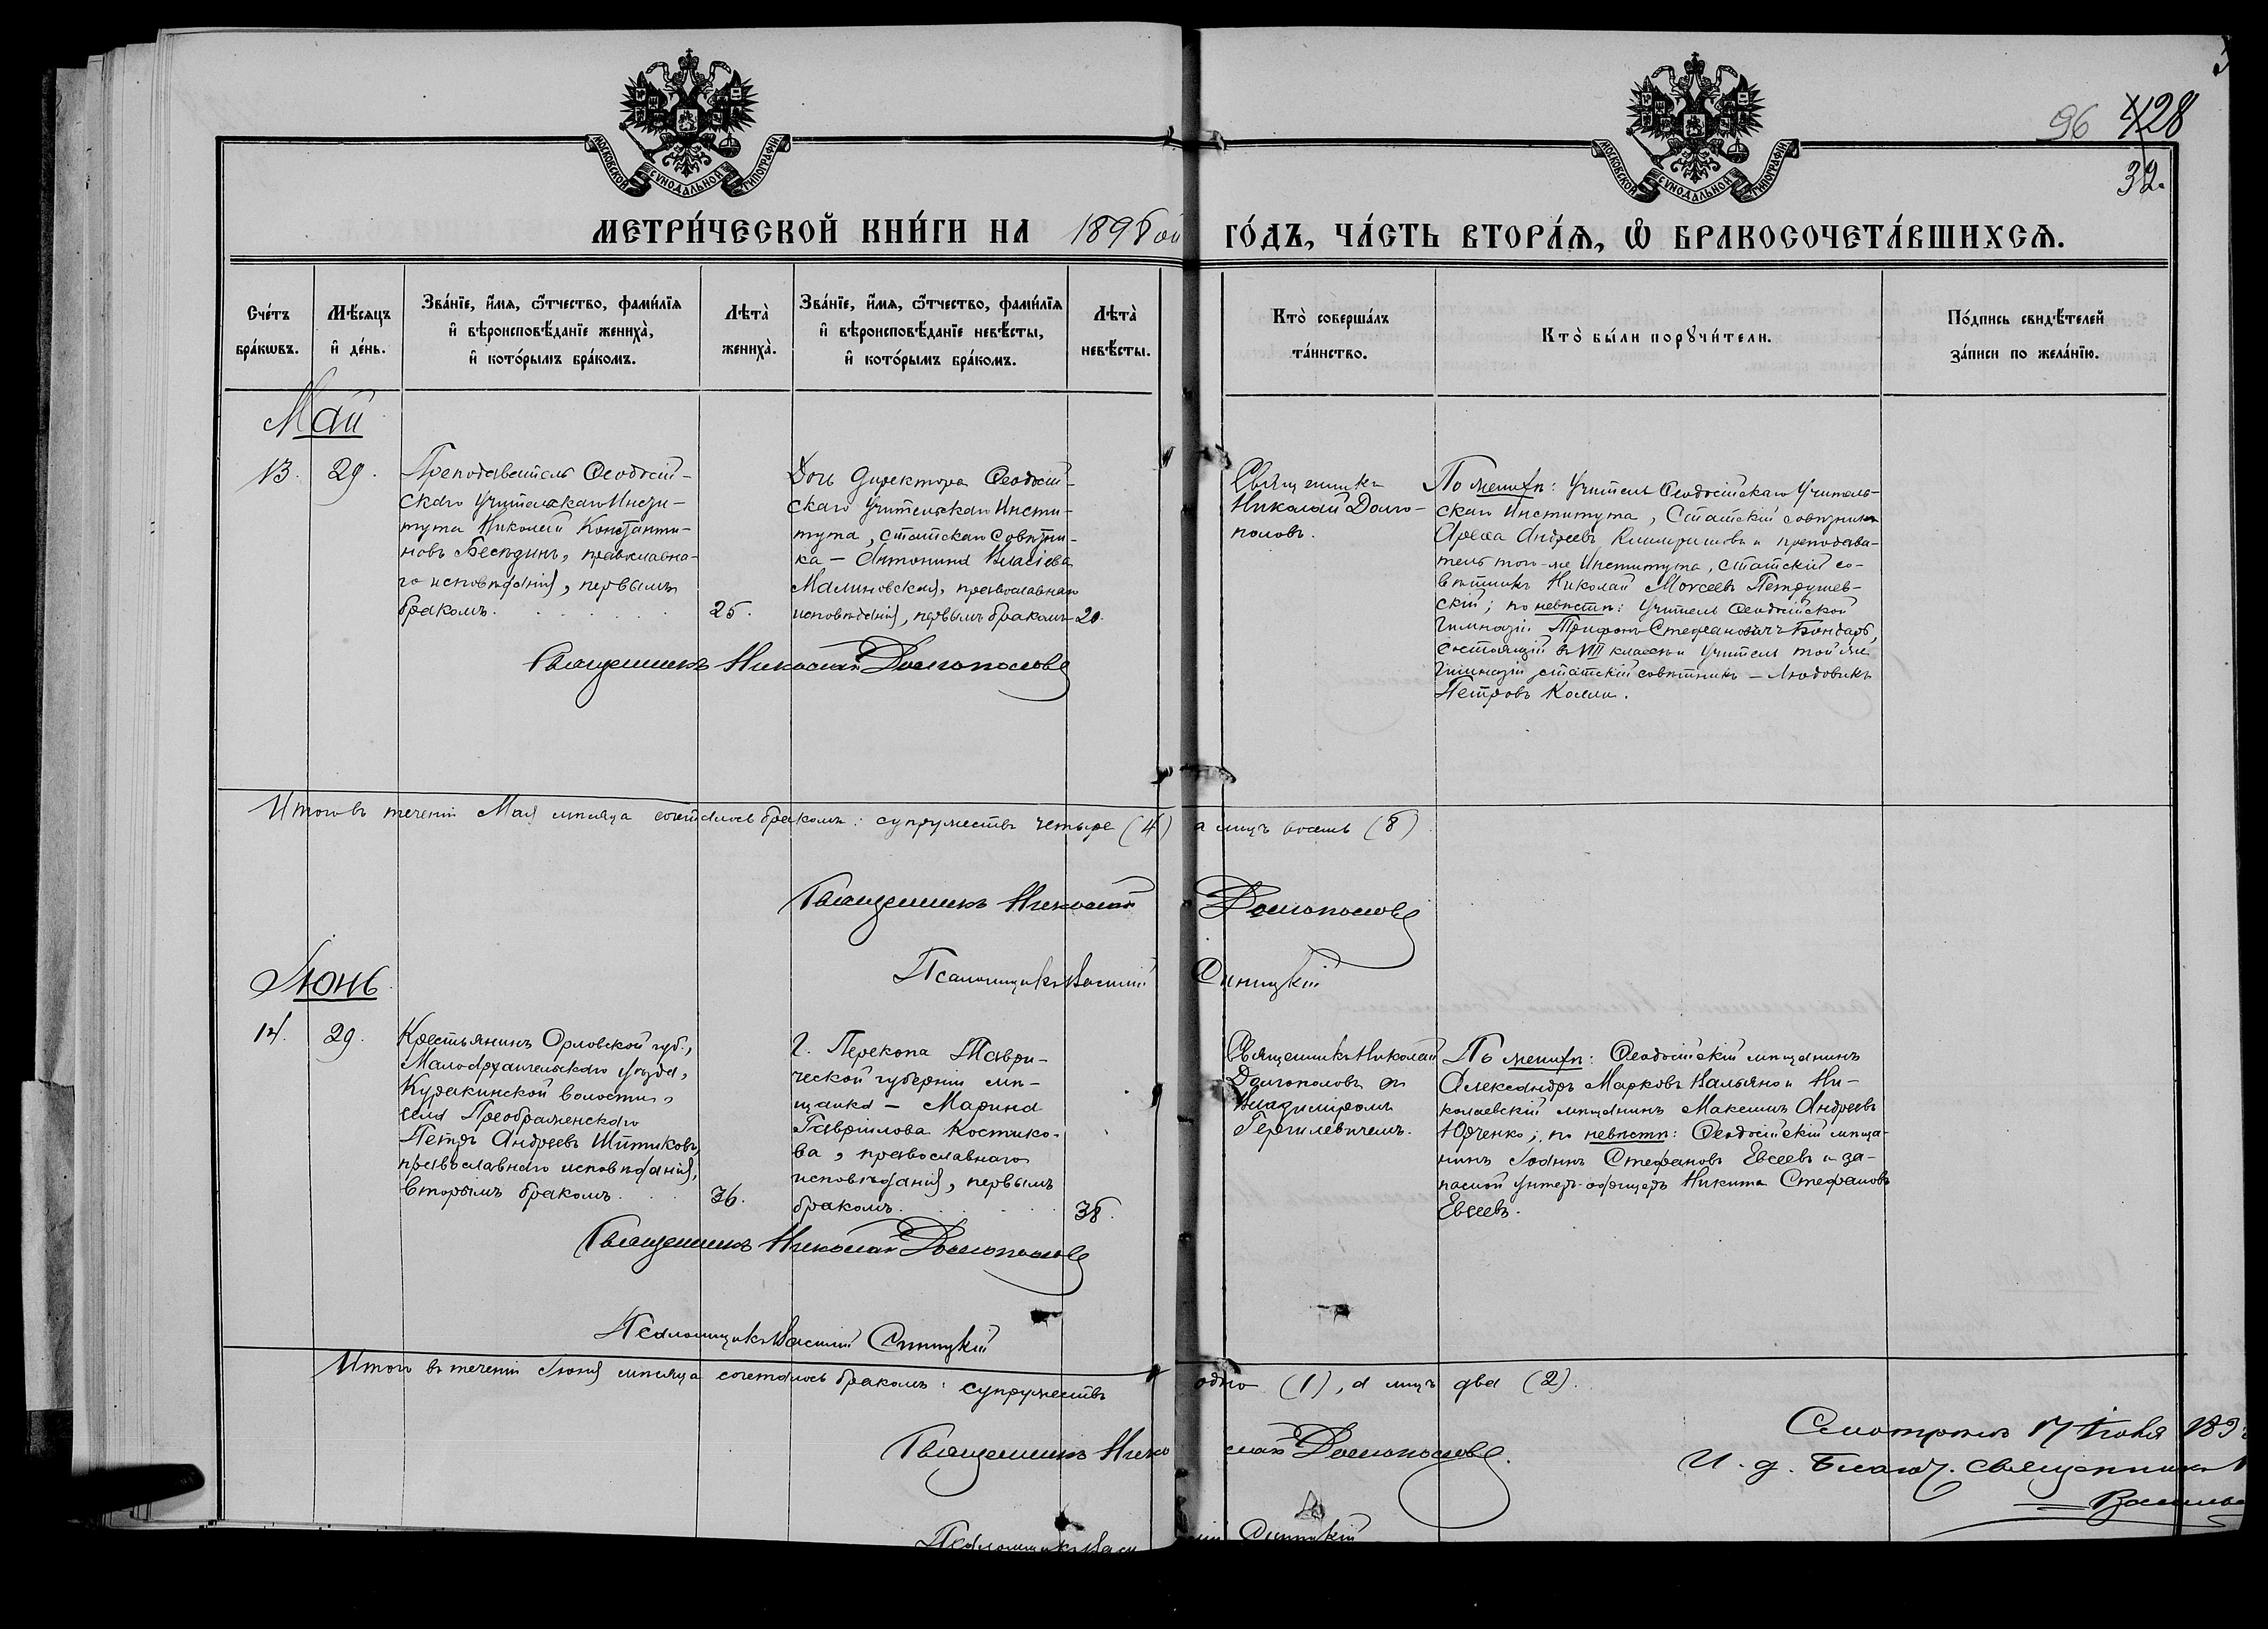 96 428
32.
МОСКОВСКОЙ СУНОДАЛЬНОЙ ТИПОГРАФІИ
МОСКОВСКОЙ СУНОДАЛЬНОЙ ТИПОГРАФІИ
МЕТРИ́ЧЕСКОЙ КНИ́ГИ НА 1898 ой ГО́ДЪ, ЧА́СТЬ ВТОРА́Ѧ, Ѡ҆ БРАКОСОЧЕТА́ВШИХСѦ.
Сче́тъ
бра́кѡвъ.
Мѣ́сяцъ
и҆ де́нь.
Зва́нїе, и҆́мя, ѻ҆́тчество, фами́лїя
и҆ вѣроисповѣ́данїе жениха̀,
и҆ кото́рымъ бра́комъ.
Лѣта̀
жениха̀.
Зва́нїе, и҆́мя, ѻ҆́тчество, фами́лїя
и҆ вѣроисповѣ́данїе невѣ́сты,
и҆ кото́рымъ бра́комъ.
Лѣта̀
невѣ́сты.
Кто̀ соверша́лъ
та́инство.
Кто̀ бы́ли порꙋчи́тели.
По́дпись свидѣ́телей
за́писи по жела́нїю.
Май
13.
29.
Преподаватель Ѳеодосій-
скаго Учительскаго Инсти-
тута Николай Константи-
новъ Бесѣдинъ, православна-
го исповѣданія, первымъ
бракомъ.
25.
Дочь Директора Ѳеодосій-
скаго Учительскаго Инсти-
тута, статскаго совѣтни-
ка – Антонина Власіева
Малиновская, православнаго
исповѣданія, первымъ бракомъ
20.
Священникъ
Николай Долго-
половъ.
По женихѣ: Учитель Ѳеодосійскаго Учитель-
скаго Института, Статскій совѣтникъ
Андреевъ и преподава-
тель того-же Института, статскій со-
вѣтникъ Николай Моѵсеевъ Петрушев-
скій; по невѣстѣ: Учитель Ѳеодосійской
Гимназіи Трифонъ Стефановичъ Бондарь,
состоящій въ VIII классѣ и Учитель той же
Гимназіи статскій совѣтникъ – Людовикъ
Петровъ Колли.
Священникъ Николай Долгополовъ
Итого въ теченіи Мая мѣсяца сочеталось бракомъ: супружествъ четыре (4) а лицъ восемь (8)
Священникъ Николай Долгополовъ
Псаломщикъ Василій Синицкій
Іюнь
14.
29.
Крестьянинъ Орловской губ.,
Малоархангельскаго уѣзда,
Куракинской волости,
села Преображенскаго
Петръ Андреевъ Шитиковъ,
православнаго исповѣданія,
вторымъ бракомъ.
36.
Г. Перекопа Таври-
ческой губерніи мѣ-
щанка – Марина
Гавриилова Костико-
ва, православнаго
исповѣданія, первымъ
бракомъ.
38.
Священникъ Николай
Долгополовъ съ
Владиміромъ
Гергилевичемъ.
По женихѣ: Ѳеодосійскій мѣщанинъ
Александръ Марковъ Вальяно и Ни-
колаевскій мѣщанинъ Максимъ Андреевъ
Юрченко; по невѣстѣ: Ѳеодосійскій мѣща-
нинъ Іоаннъ Стефановъ Евсеевъ и за-
пасной унтеръ-офицеръ Никита Стефановъ
Евсеевъ.
Священникъ Николай Долгополовъ
Псаломщикъ Василій Синицкій
Итого въ теченіи Іюня мѣсяца сочеталось бракомъ: супружествъ одно (1), а лицъ два (2).
Священникъ Николай Долгополовъ.
Смотрѣлъ 17 Іюля 189
И. д. Благоч. священникъ
Псаломщикъ Василій Синицкій